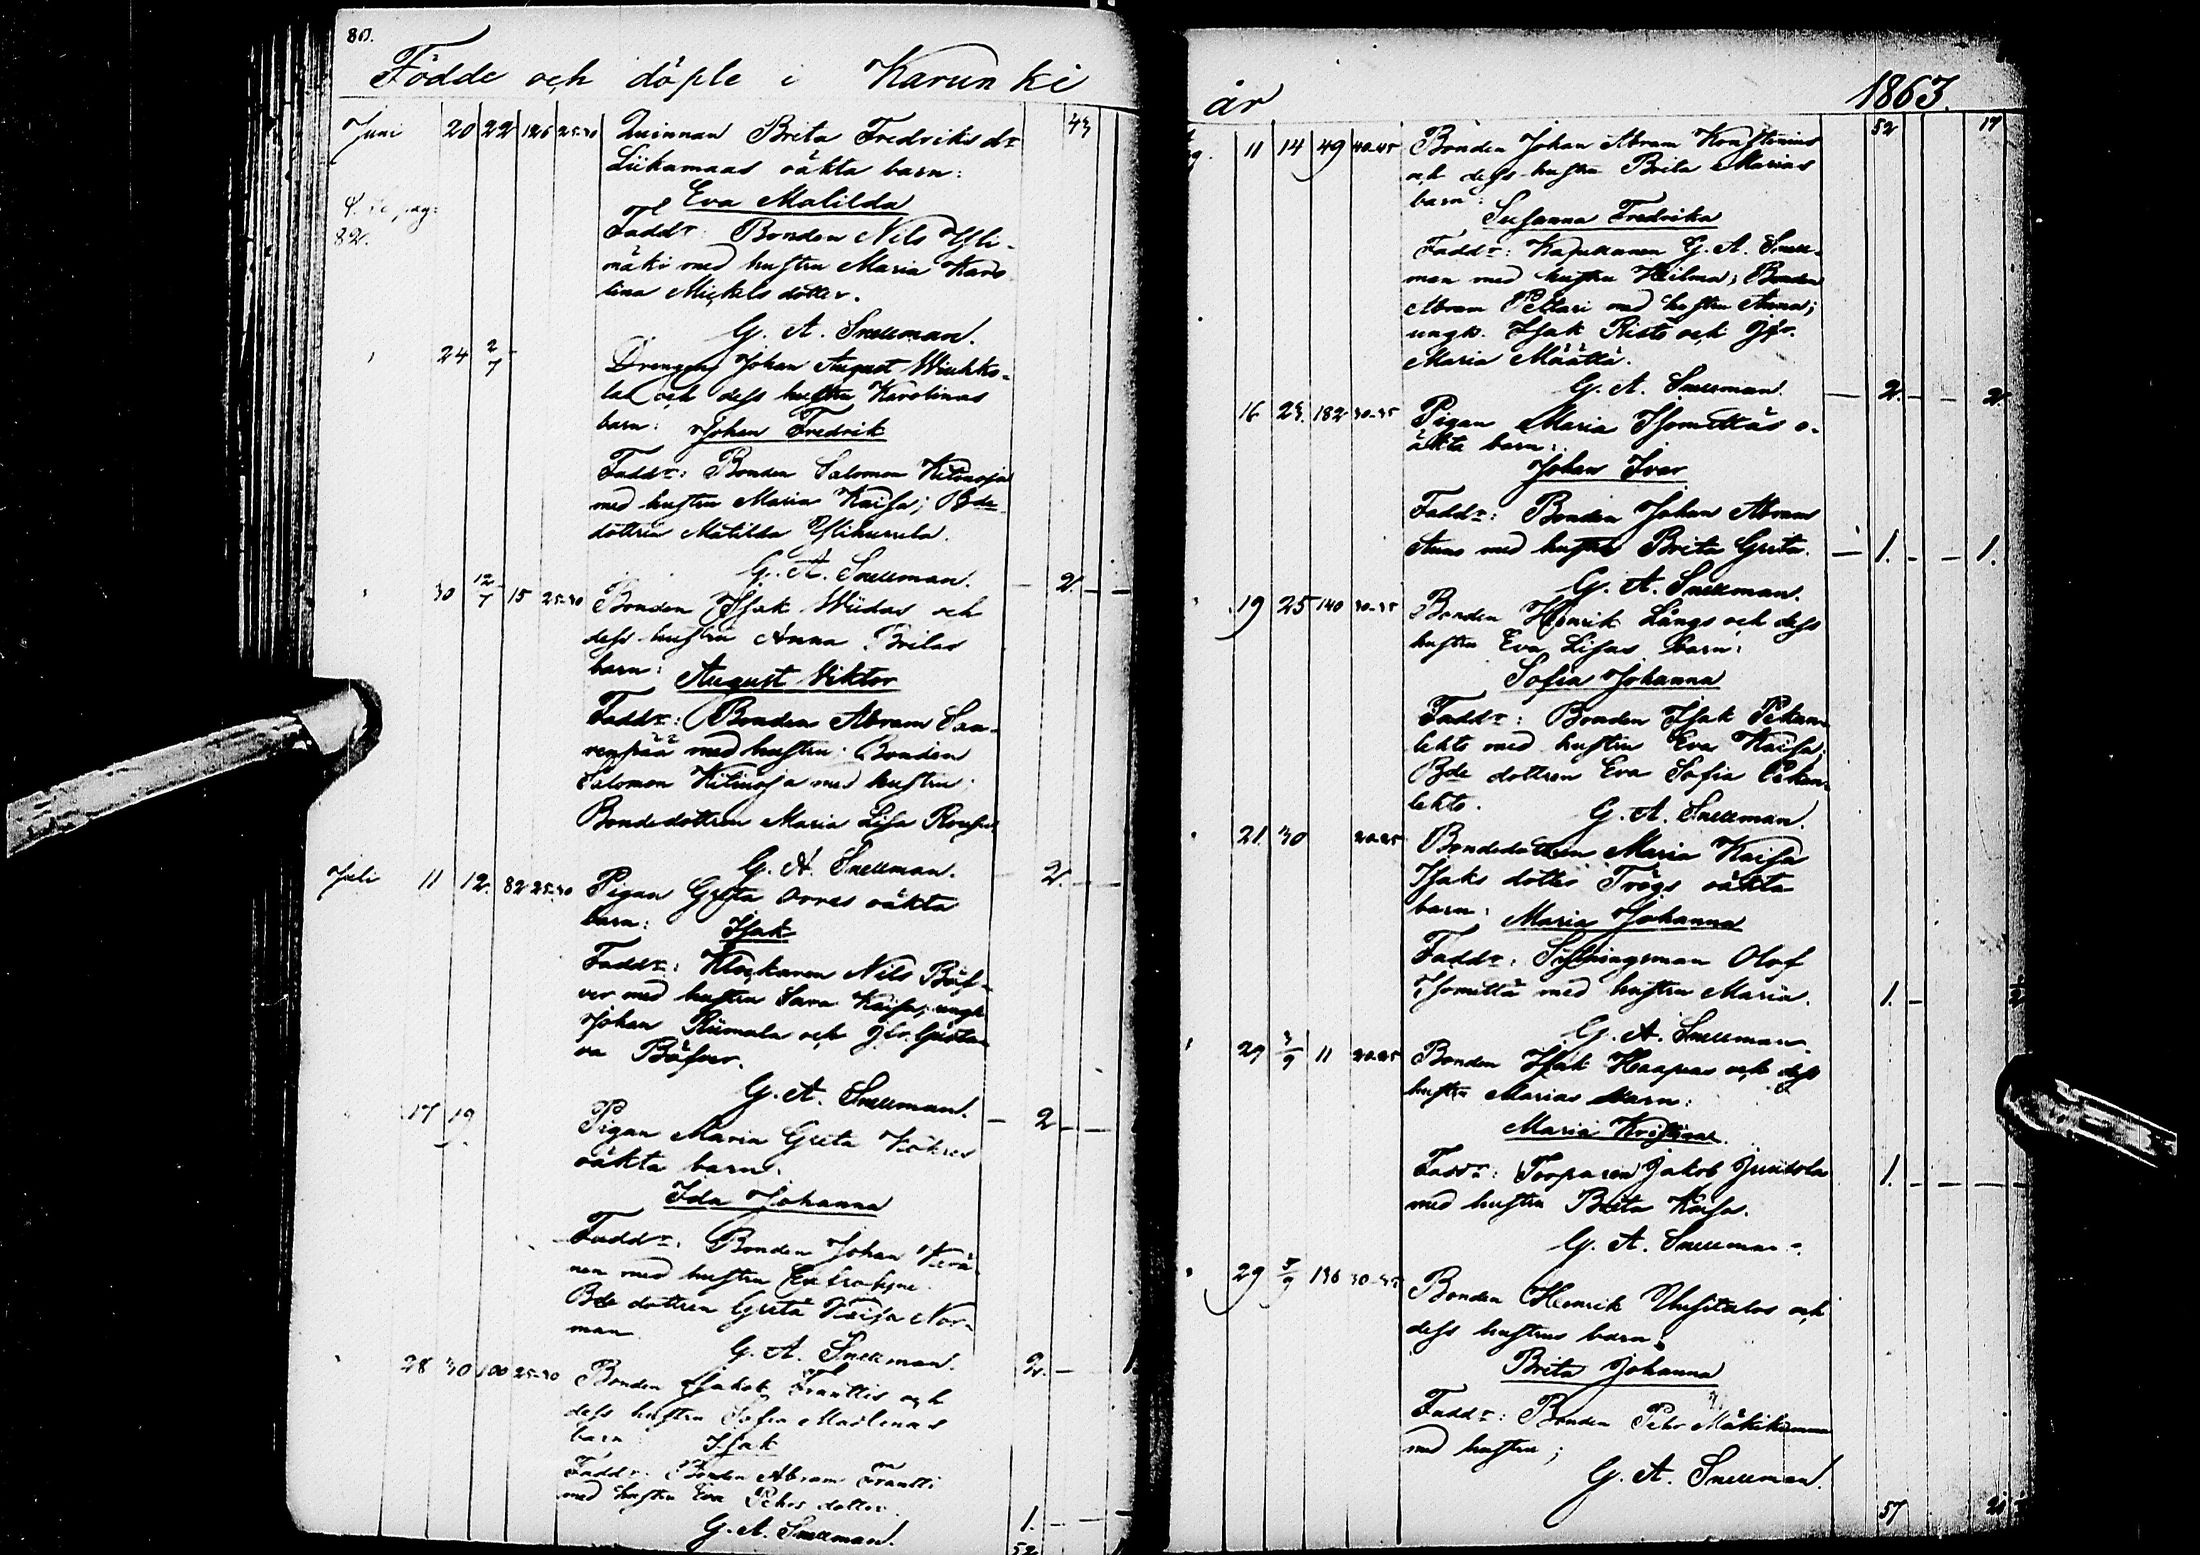 80.
Födde och döpte i Karunki
Juni 20 22 126 25-30 Qvinnan Brita Fredriks dr
43
Liikamaas oäkta barn:
Eva Matilda
pag:
82.
Faddr: Bonden Nils Yli-
mäki med hustru Maria Karo
lina Mickels dotter.
G. A. Snellman.
24 2/7 Drengen Johan August Wiuhko-
la och dess hustru Karolinas
barn: Johan Fredrik
Faddr: Bonden Salomon Kitinoja
med hustru Maria Kaisa; Bde
dottren Matilda Ylihurula.
G. A. Snellman. — 2. — —
30 12/7 15 25-30 Bonden Isak Wiidas och
dess hustru Anna Britas
barn: August Viktor
Faddr: Bonden Abram Saa-
renpää med hustru; Bonden
Salomon Kitinoja med hustru;
Bondedottren Maria Lisa
G. A. Snellman. — 2. — —
Juli 11 12. 82 25-30 Pigan Greta Orres oäkta
barn: Isak
Faddr: Klockaren Nils Bäf-
ver med hustru Sara Kaisa; ungk.
Johan Riimala och Jfr. Gusta-
va Bäfver.
G. A. Snellman. — 2 — —
17 19 Pigan Maria Greta
oäkta barn:
Ida Johanna
Faddr: Bonden Johan Kerä-
nen med hustru
Bde dottren Greta Kaisa Nor-
man
G. A. Snellman. 2. —
28 30 100 25-30 Bonden Isak Franttis och
dess hustru Sofia Madlenas
barn Isak
Faddr: Bonden Abram Frantti
med hustru Eva Pehrs dotter.
G. A. Snellman. 1. — —
52
år 1863.
11 14 49 40-45 Bonden Johan Abram Konstenius
52 17
och dess hustru Brita Marias
barn:
Susanna Fredrika
Faddr: Kapellanen G. A. Snell-
man med hustru Hilma; Bonden
Abram Pettari med hustru Anna;
ungk. Isak Risto och Jfr.
Maria Määttä.
G. A. Snellman. — 2. — — 2.
16 23. 182 30-35 Pigan Maria Isomettäs o-
äkta barn:
Johan Ivar
Faddr: Bonden Johan Abram
Anas med hustru Brita Greta. — 1. — — 1.
G. A. Snellman.
19 25 140 30-35 Bonden Henrik Långs och dess
hustru Eva Lisas barn:
Sofia Johanna
Faddr: Bonden Isak Pekan-
lehto med hustru Eva Kaisa;
Bde dottren Eva Sofia Pekan-
lehto.
G. A. Snellman.
21. 30 20-25 Bondedottren Maria Kaisa
Isaks dotter Trögs oäkta
barn: Maria Johanna
Faddr: Sexningsman Olof
Isomettä med hustru Maria. 1. —
G. A. Snellman.
29 3/9 11 20-25 Bonden Isak Haapas och dess
hustru Marias barn:
Maria Kristina.
Faddr: Torparen Jakob Juntola 1. — — —
med hustru Brita Kaisa.
G. A. Snellman.
29 5/9 136 30-35 Bonden Henrik Uusitalos och
dess hustrus barn:
Brita Johanna
Faddr: Bonden Pehr
med hustru;
G. A. Snellman.
57